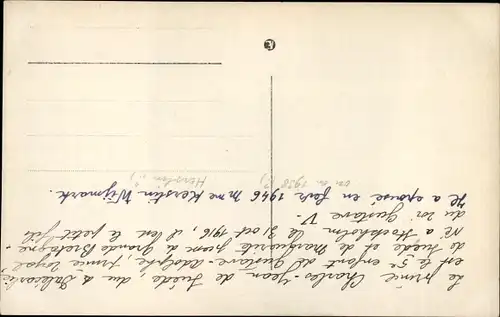 Le prince Charles-Jean de Suède, duc de Dalécarlie,
est le 5e enfant de Gustave-Adolphe, prince royal
de Suède et de Marguerite, pcesse de Grande Bretagne.
Né à Stockholm le 31 oct 1916, il est le petit fils
du roi Gustave V.
Il a épousé en févr 1946 Mme Kerstin Wijmark.